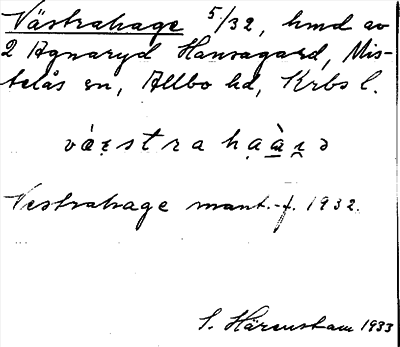 Västrahage 5/32, hmd av
2 Agnaryd Hansagard, Mis-
telås sn, Allbo hd, Krbs l.
Vestrahage mant.-f. 1932.
S. Härenstam 1933